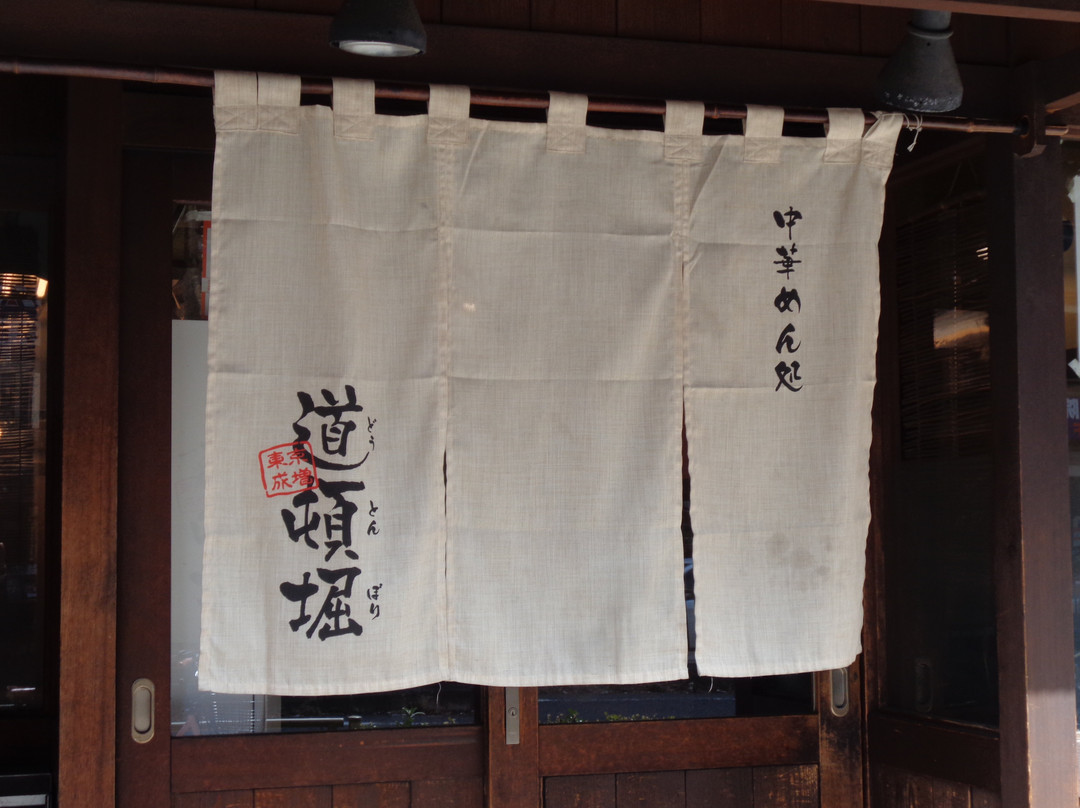 中華めん処
道頓堀
どう
とん
ぼり
東京
成増